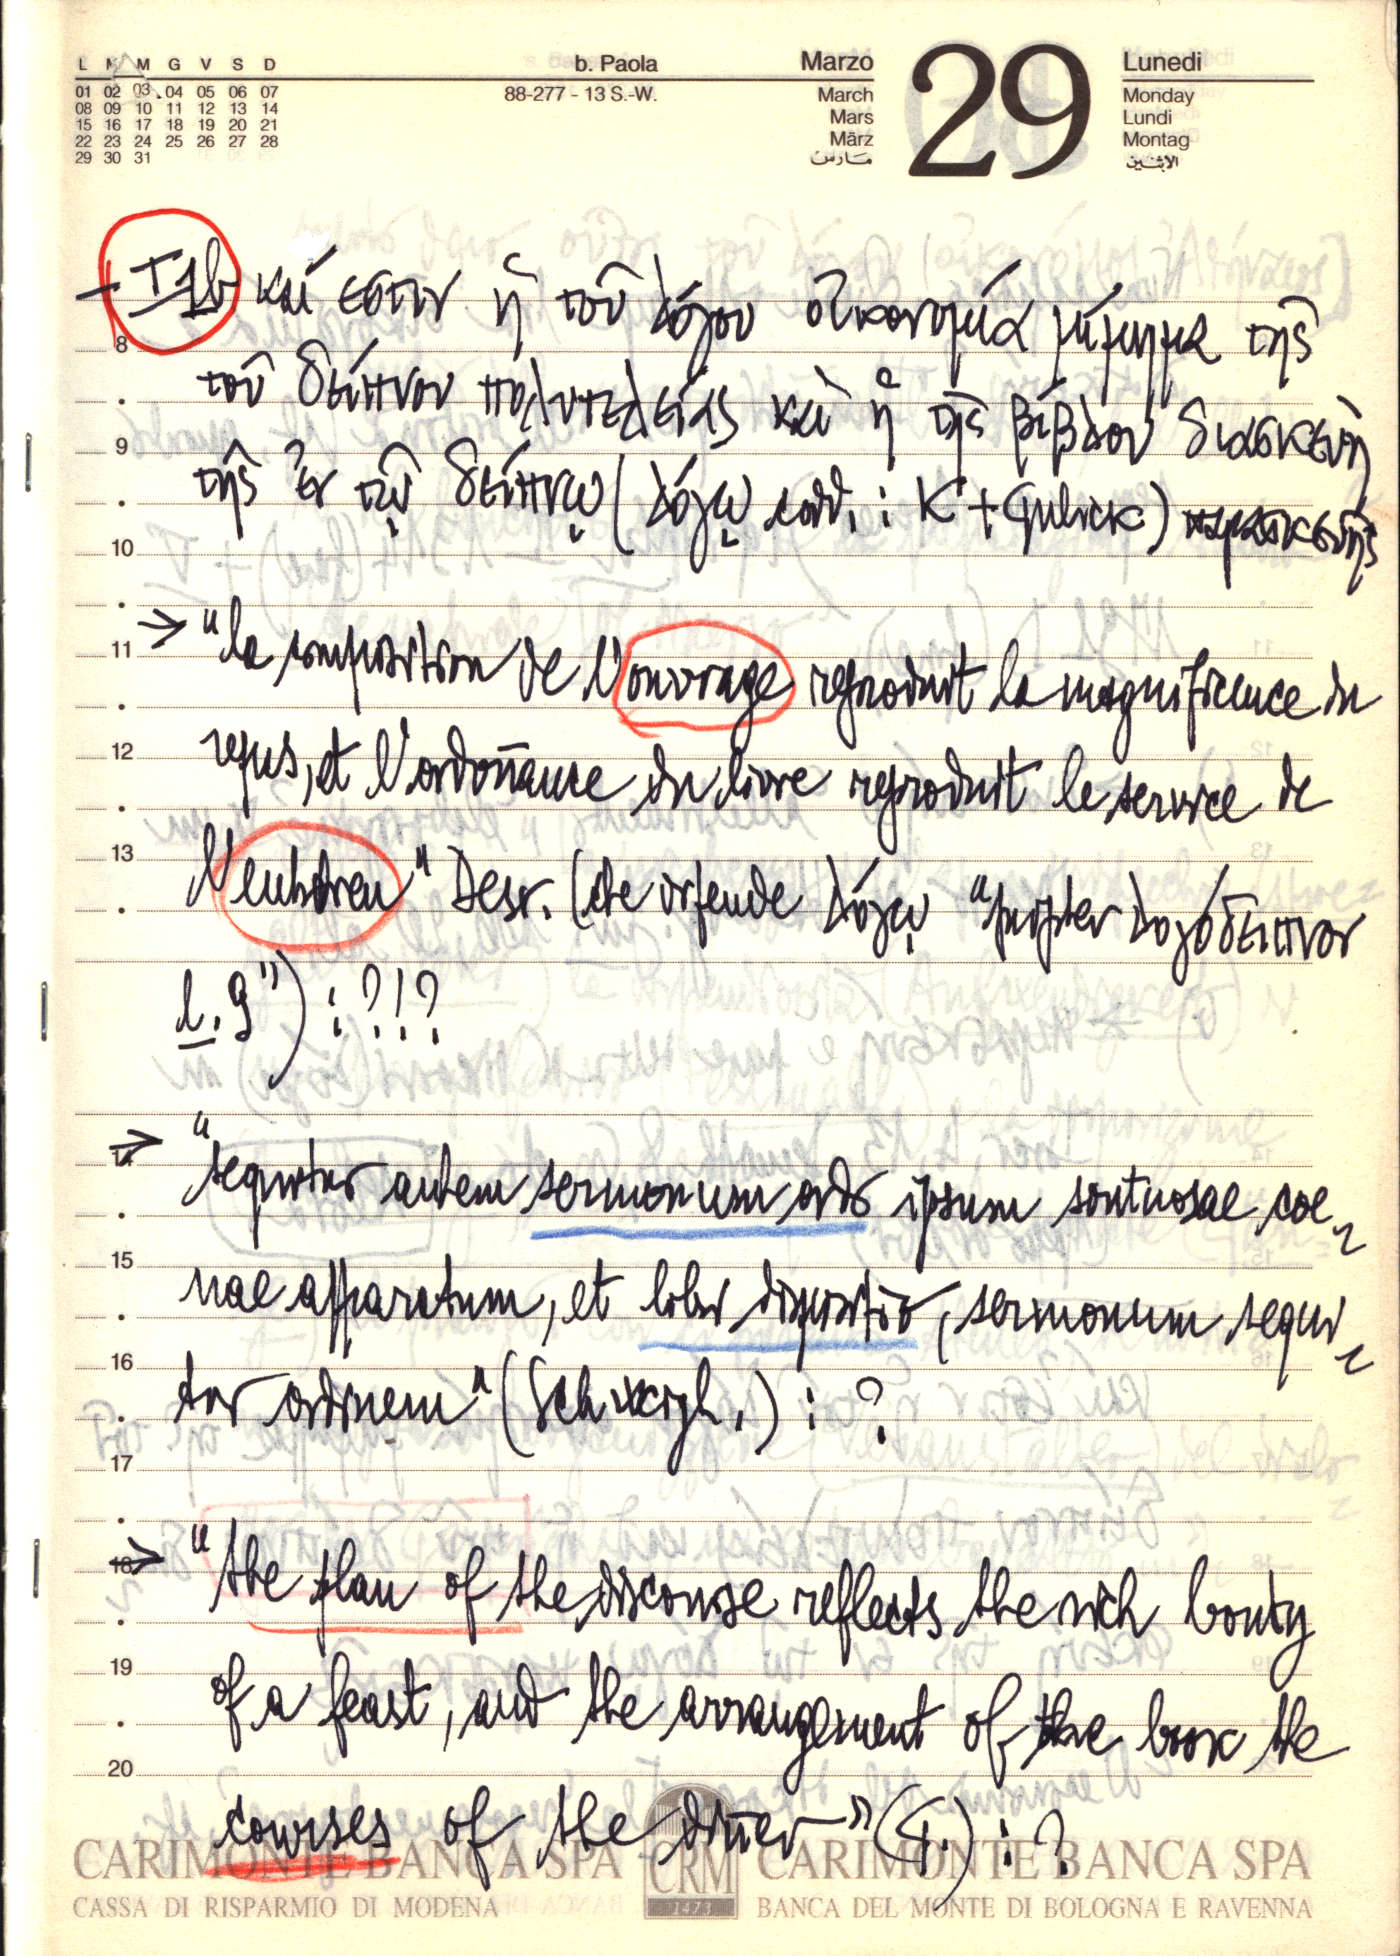 L M M G V S D
01 02 03 04 05 06 07
08 09 10 11 12 13 14
15 16 17 18 19 20 21
22 23 24 25 26 27 28
29 30 31
b. Paola
88-277 - 13 S.-W.
Marzo
March
Mars
März
مارس
29
Lunedi
Monday
Lundi
Montag
الاثنين
- I 1b καί ἐστιν ἡ τοῦ λόγου οἰκονομία μίμημα τῆς
8
τοῦ δείπνου πολυτελείας καὶ ἡ τῆς βίβλου διασκευὴ
9
τῆς ἐν τῷ δείπνῳ (λόγῳ codd. : K + Gulick) παρασκευῆς
10
→ "la composition de l'ouvrage reproduit la magnificence du
11
repas, et l'ordonnance du livre reproduit le service de
12
l'entretien" Desr. (che difende λόγῳ "propter λογόδειπνον
13
l. 9") : ?!?
→ "sequitur autem sermonum ordo ipsum sontuosae coe-
14
nae apparatum, et libri dispositio, sermonum sequi-
15
tur ordinem" (Schweigh.) : ?
16
17
→ "the plan of the discourse reflects the rich bounty
18
of a feast, and the arrangement of the book the
19
courses of the dinner" (G.) : ?
20
CARIMONTE BANCA SPA
CASSA DI RISPARMIO DI MODENA
CRM
1473
CARIMONTE BANCA SPA
BANCA DEL MONTE DI BOLOGNA E RAVENNA